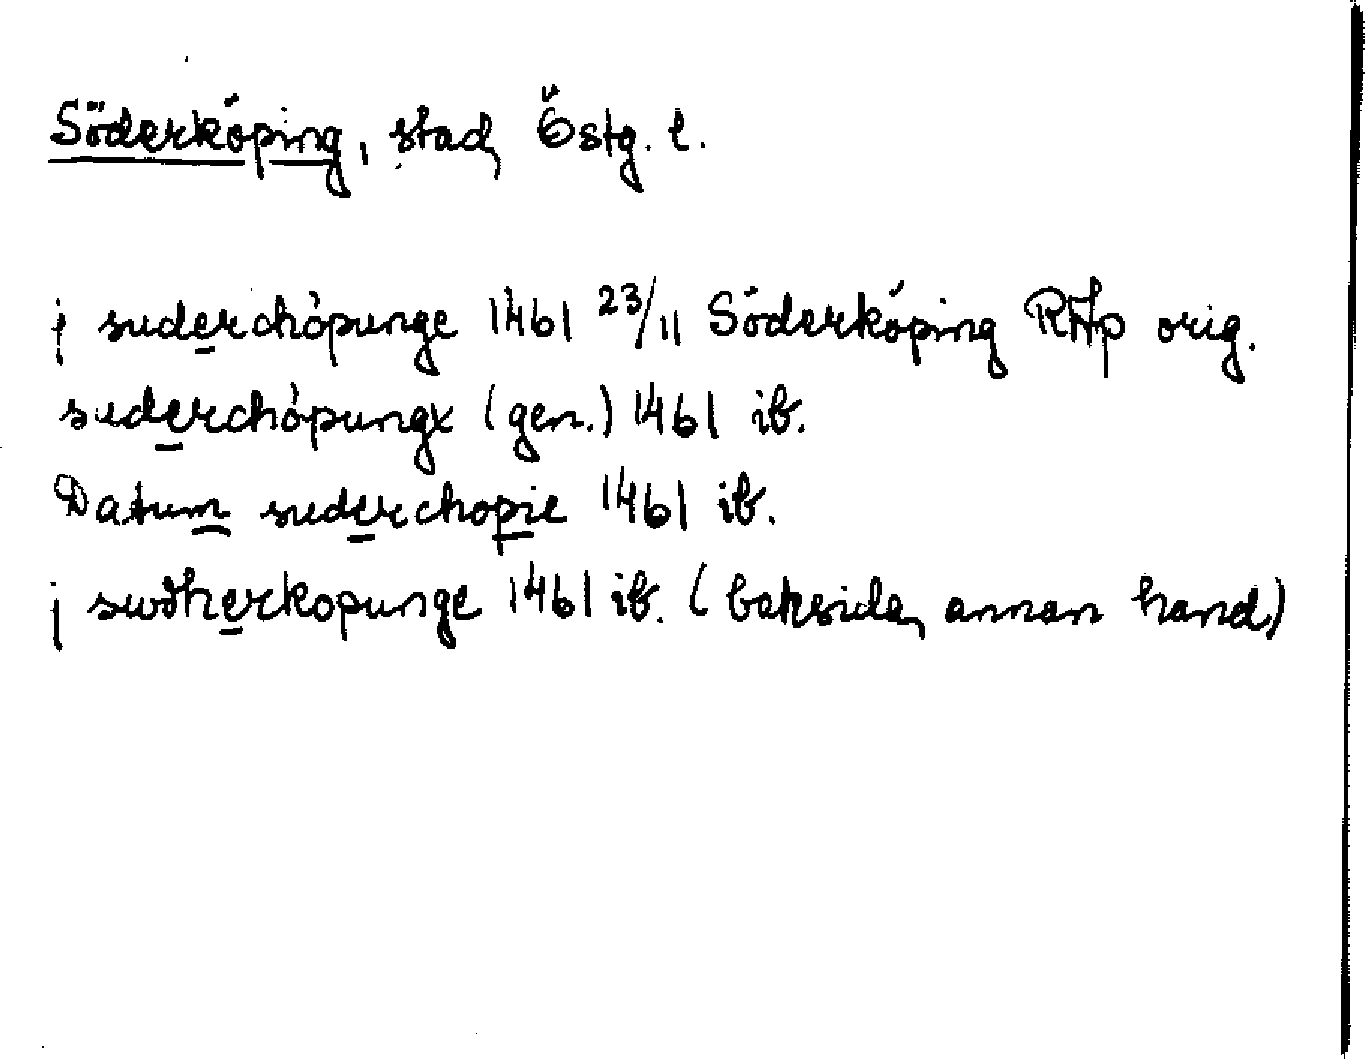 Söderköping, stad, Östg. l.
j suderchöpunge 1461 23/11 Söderköping RAp orig.
suderchöpungx (gen.) 1461 ib.
Datum suderchopie 1461 ib.
j swdherkopunge 1461 ib. (baksida, annan hand)